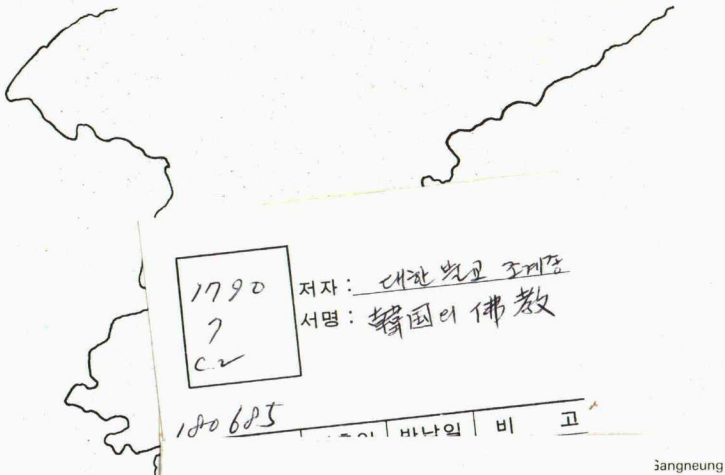 1790
7
C.2
저자 : 대한 불교 조계종
서명 : 韓国의 佛教
180685
반납일 비 고
Gangneung